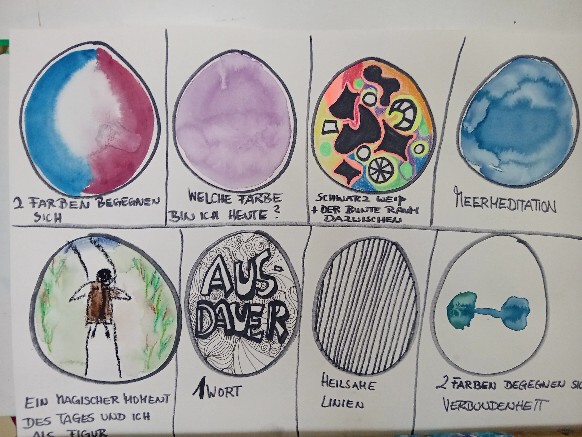 2 FARBEN BEGEGNEN
SICH
WELCHE FARBE
BIN ICH HEUTE?
SCHWARZ WEIß
+ DER BUNTE RAUM
DAZWISCHEN
MEERMEDITATION
AUS-
DAUER
EIN MAGISCHER MOMENT
DES TAGES UND ICH
ALS FIGUR
1 WORT
HEILSAME
LINIEN
2 FARBEN BEGEGNEN SIC
VERBUNDENHEIT